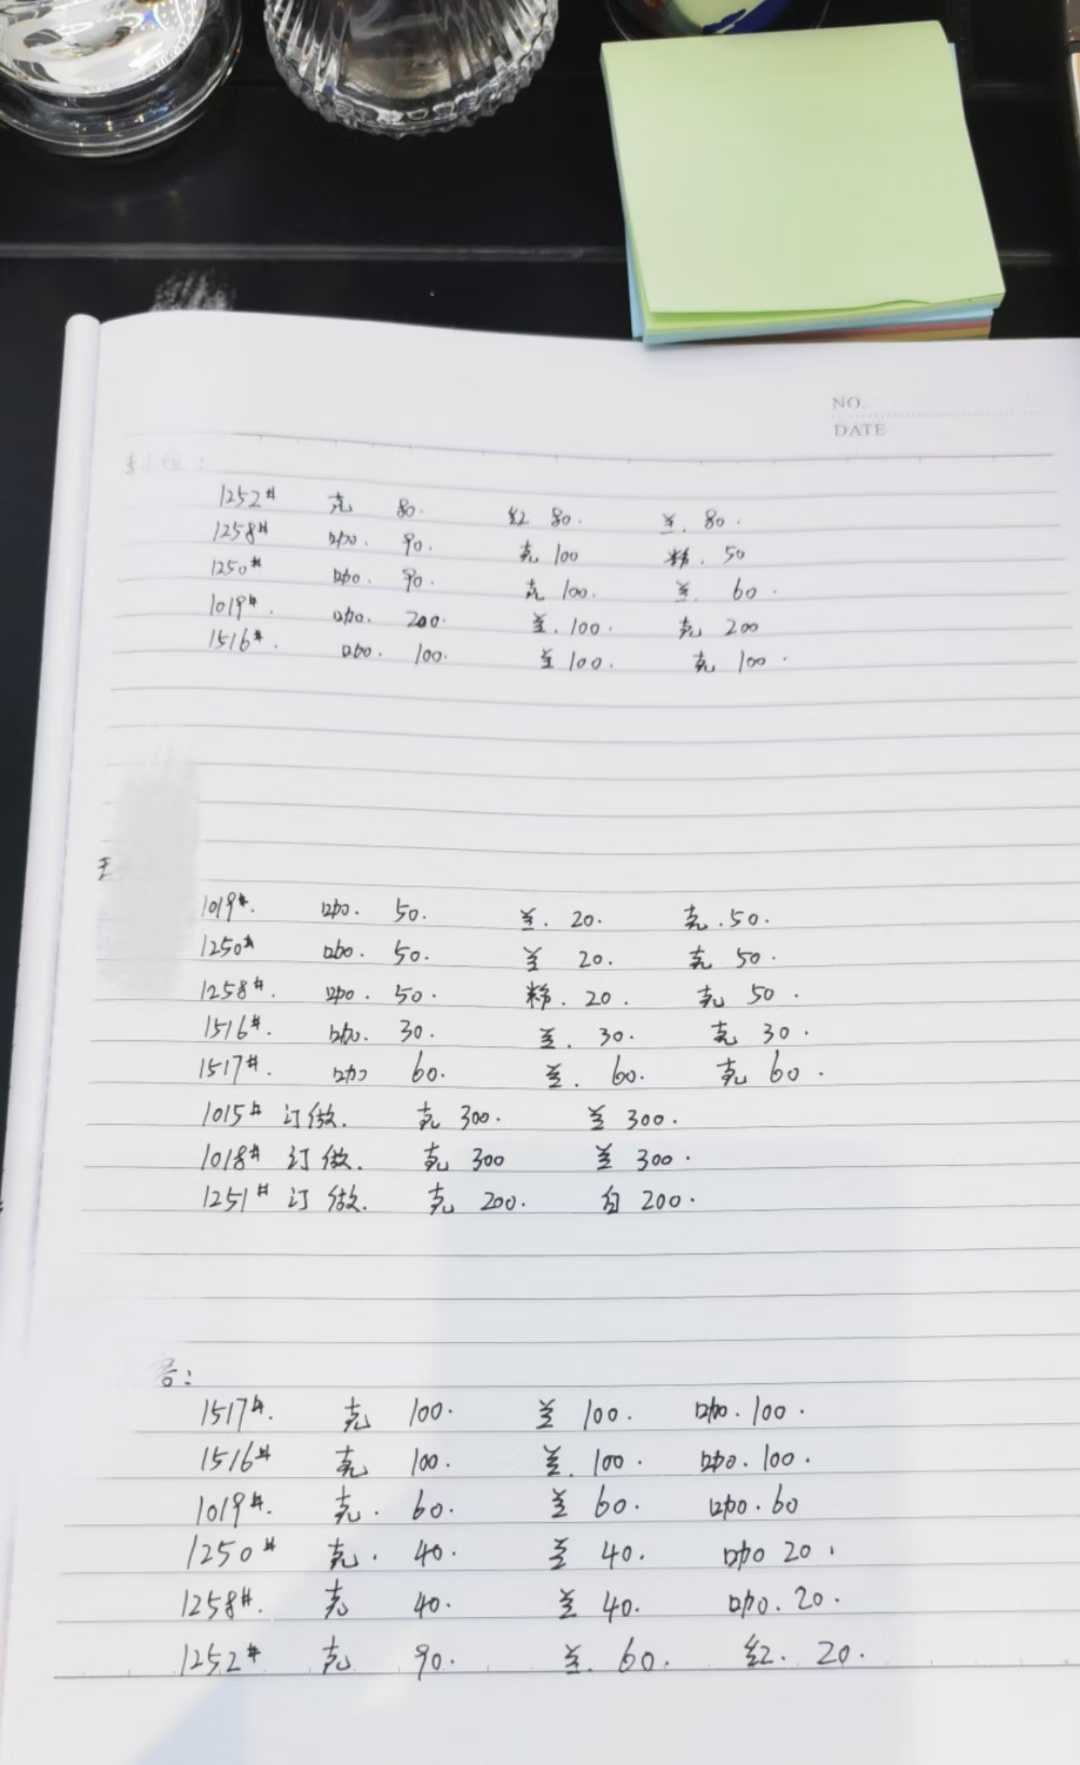 NO.
DATE
1252# 克 80. 红 80. 兰. 80.
1258# 咖. 90. 克 100 粉. 50
1250# 咖. 90. 克 100. 兰. 60.
1019#. 咖. 200. 兰. 100. 克 200
1516#. 咖. 100. 兰 100. 克 100.
王
1019#. 咖. 50. 兰. 20. 克. 50.
1250# 咖. 50. 兰 20. 克 50.
1258#. 咖. 50. 粉. 20. 克 50.
1516#. 咖. 30. 兰. 30. 克 30.
1517#. 咖 60. 兰. 60. 克 60.
1015# 订做. 克 300. 兰 300.
1018# 订做. 克 300 兰 300.
1251# 订做. 克 200. 白 200.
客:
1517#. 克 100. 兰 100. 咖. 100.
1516# 克 100. 兰. 100. 咖. 100.
1019#. 克. 60. 兰 60. 咖. 60
1250# 克. 40. 兰 40. 咖 20.
1258#. 克 40. 兰 40. 咖. 20.
1252# 克 90. 兰. 60. 红. 20.